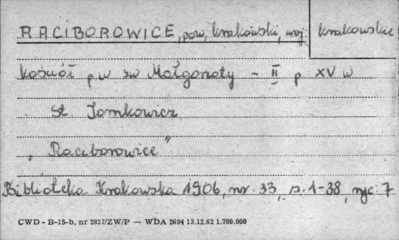 RACIBOROWICE, pow. krakowski, woj. krakowskie
kościół p.w. św. Małgorzaty - II p XV w
St. Tomkowicz
"Raciborowice"
Biblioteka Krakowska 1906, nr. 33, s. 1-38, ryc. 7
CWD - B-15-b, nr 2827/ZW/P — WDA 2694 13.12.62 1.700.000